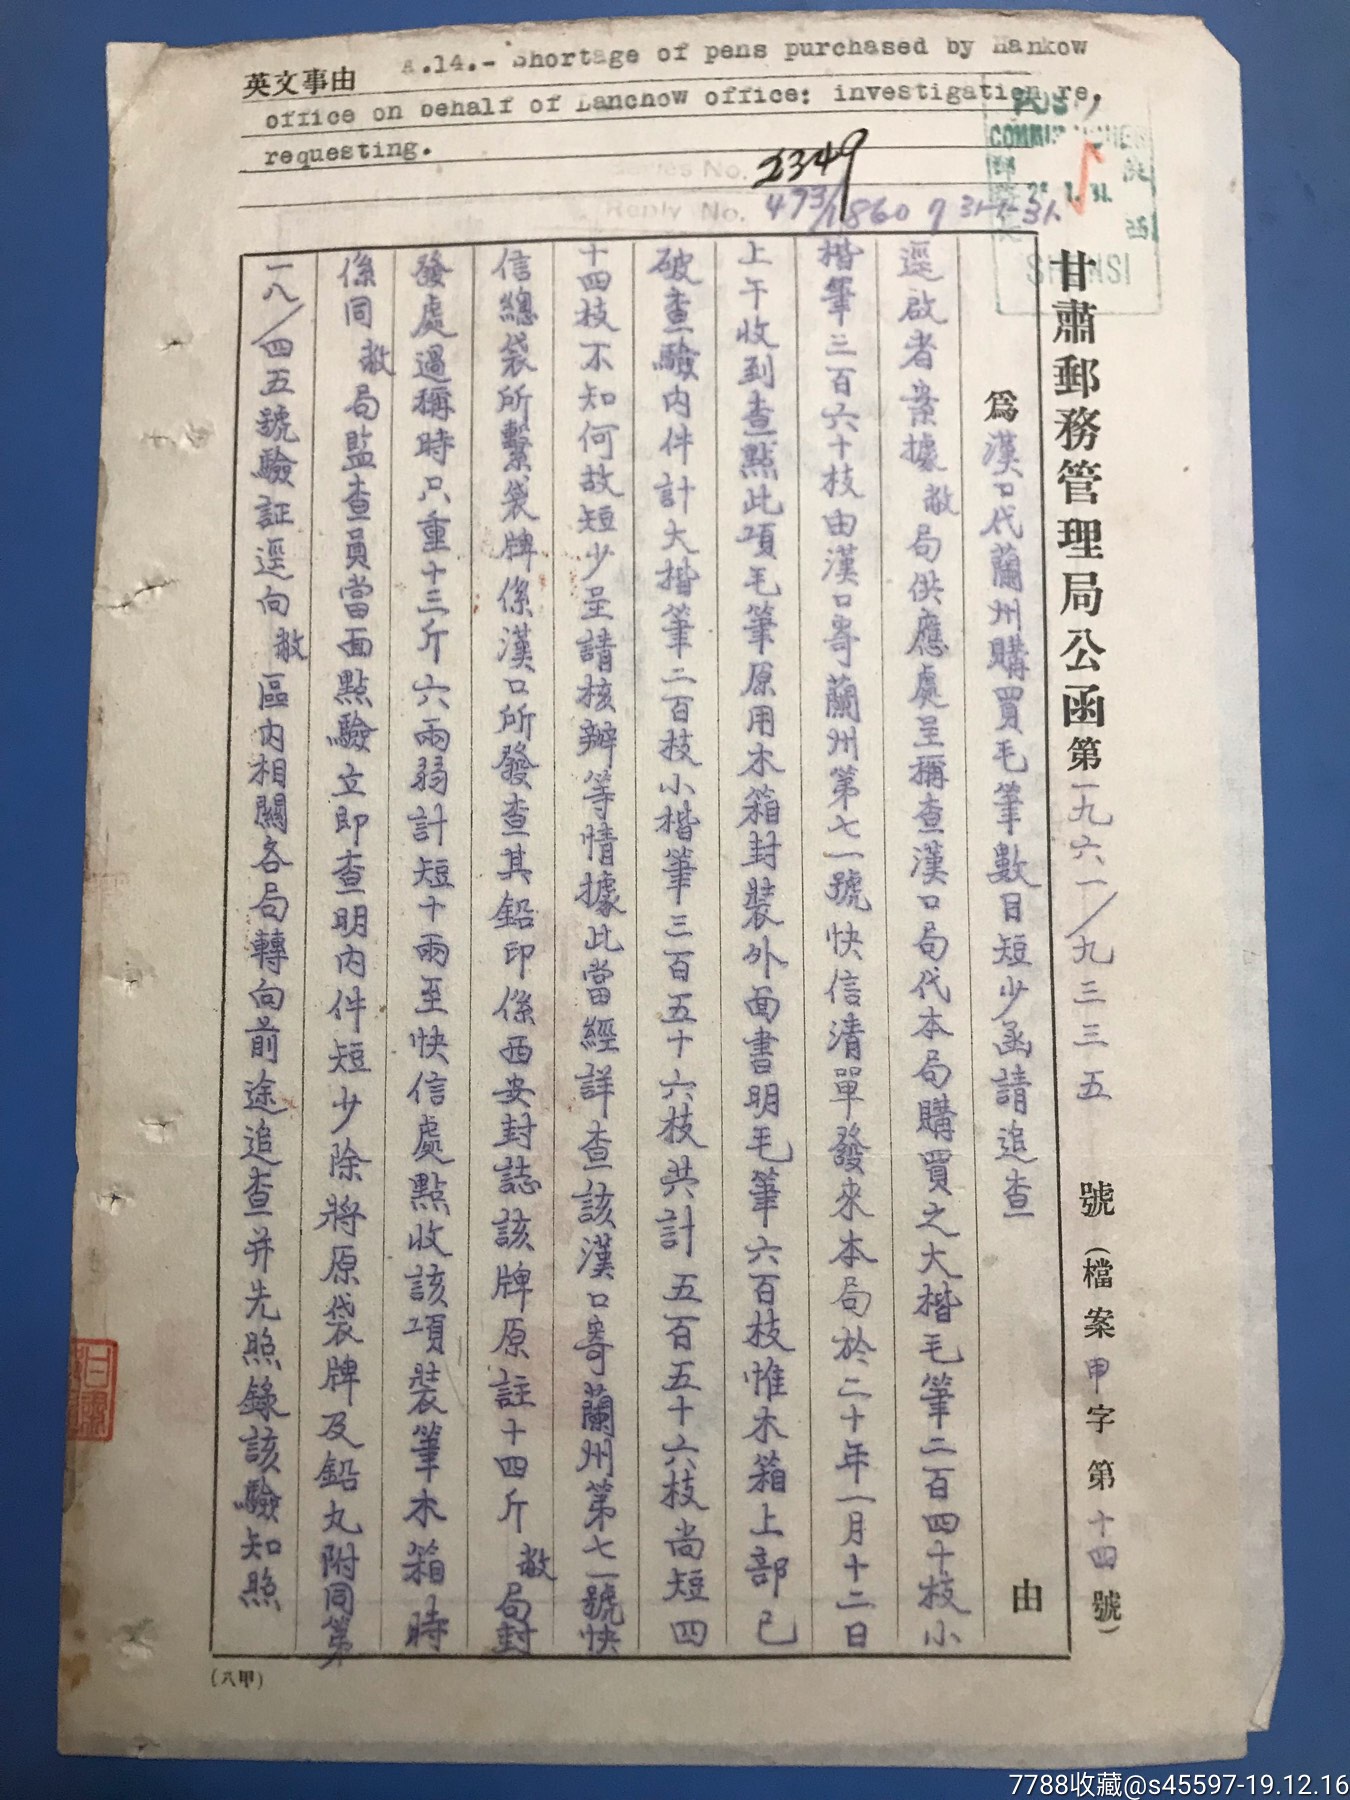 英文事由 A.14.- Shortage of pens purchased by Hankow
office on behalf of Lanchow office: investigation re,
requesting.
Series No. 2349
Reply No. 473/1860 31-1-31.
POST
COMMISSIONER
西
SHENSI
甘肅郵務管理局公函第一九六一/九三三五號(檔案甲字第十四號)
為漢口代蘭州購買毛筆數目短少函請追查由
逕啟者案據敝局供應處呈稱查漢口局代本局購買之大楷毛筆二百四十枝小
楷筆三百六十枝由漢口寄蘭州第七一號快信清單發來本局於二十年一月十二日
上午收到查點此項毛筆原用木箱封裝外面書明毛筆六百枝惟木箱上部已
破查驗內件計大楷筆二百枝小楷筆三百五十六枝共計五百五十六枝尚短四
十四枝不知何故短少呈請核辦等情據此當經詳查該漢口寄蘭州第七一號快
信總袋所繫袋牌係漢口所發查其鉛印係西安封誌該牌原註十四斤敝局封
發處過稱時只重十三斤六兩弱計短十兩至快信處點收該項裝筆木箱時
係同敝局監查員當面點驗立即查明內件短少除將原袋牌及鉛丸附同第
一八/四五號驗証逕向敝區內相關各局轉向前途追查并先照錄該驗知照
(八甲)
7788收藏@s45597-19.12.16